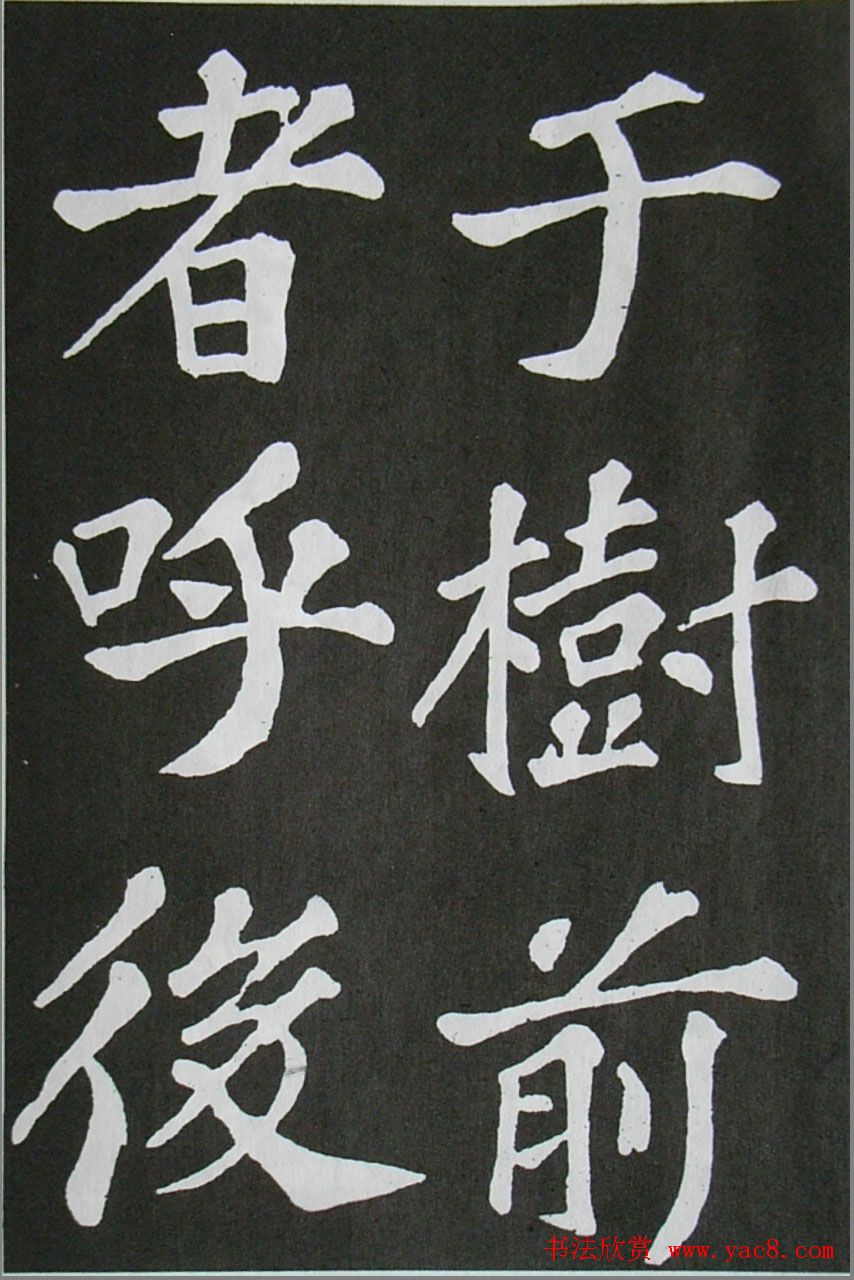 于樹前
者呼後
书法欣赏 www.yac8.com